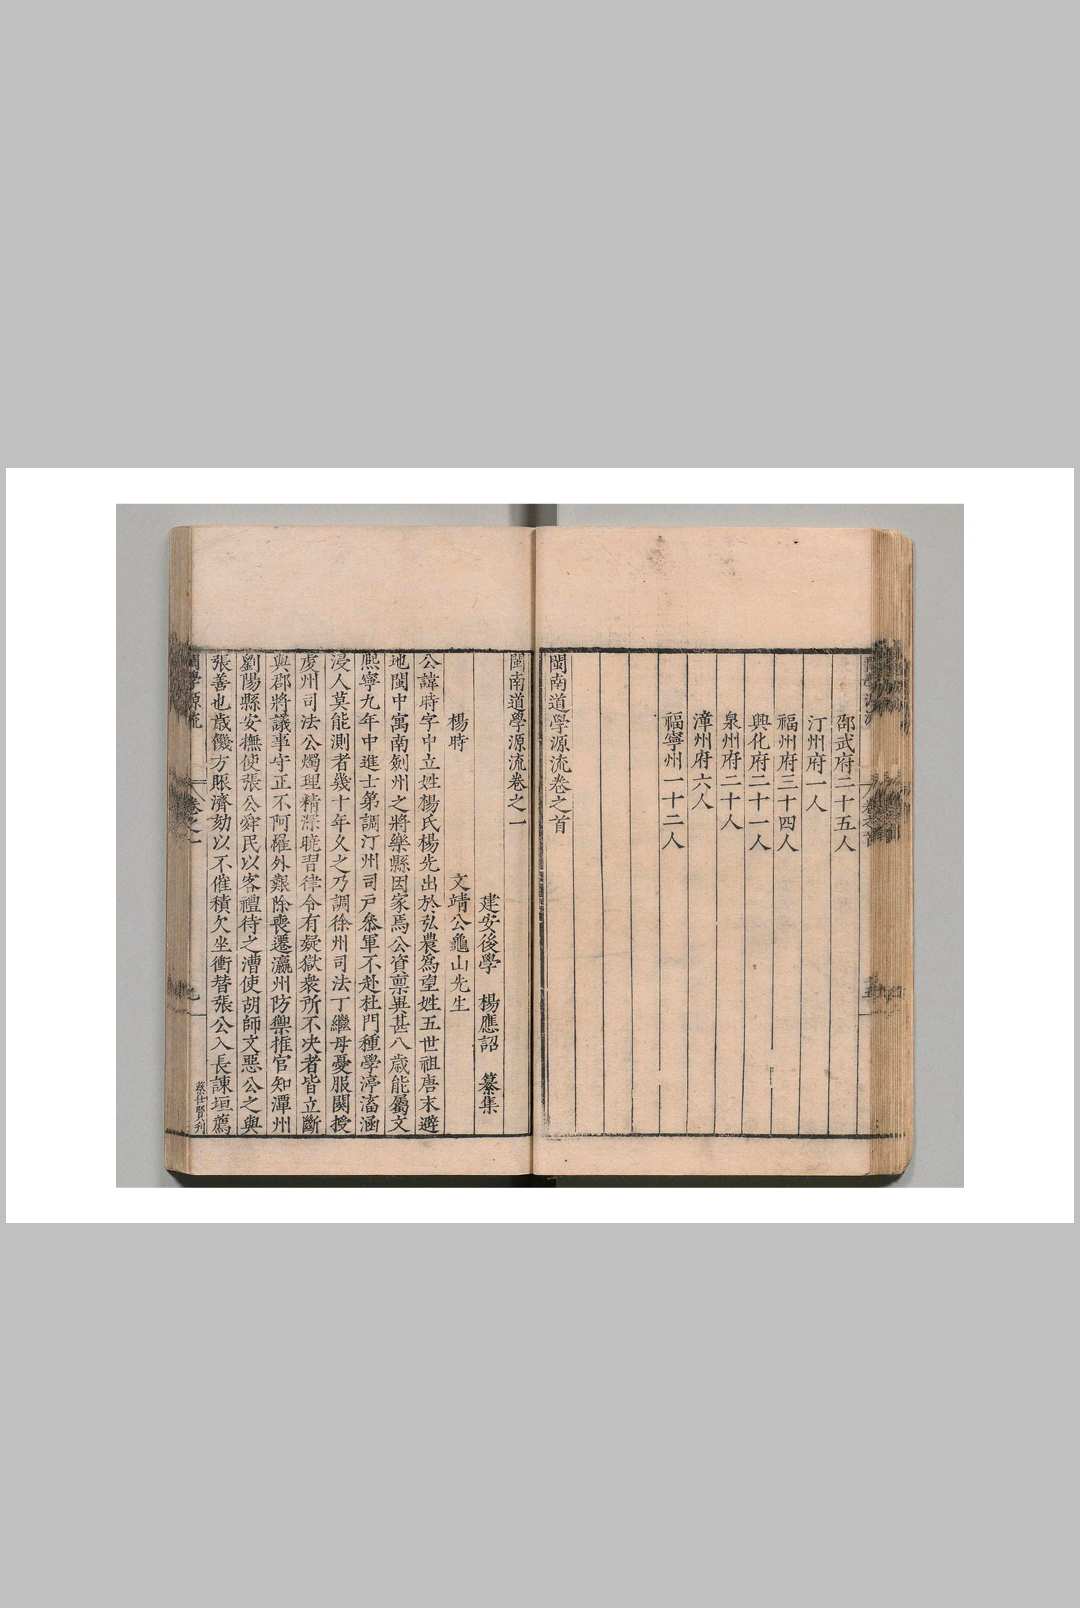 邵武府二十五人
汀州府一人
福州府三十四人
興化府二十一人
泉州府二十人
漳州府六人
福寧州一十二人
閩南道學源流卷之首
閩南道學源流卷之一
建安後學 楊應詔 纂集
楊時 文靖公龜山先生
公諱時字中立姓楊氏楊先出於弘農爲望姓五世祖唐末避
地閩中寓南劍州之將樂縣因家焉公資稟異甚八歲能屬文
熙寧九年中進士第調汀州司戶叅軍不赴杜門種學渟滀涵
浸人莫能測者幾十年久之乃調徐州司法丁繼母憂服闋授
虔州司法公燭理精深曉習律令有疑獄衆所不决者皆立斷
與郡將議事守正不阿罹外艱除喪遷瀛州防禦推官知潭州
劉陽縣安撫使張公舜民以客禮待之漕使胡師文惡公之與
張善也歲饑方賑濟劾以不催積欠坐衝替張公入長諫垣薦
閩學源流 卷之一 蔡仕賢刋